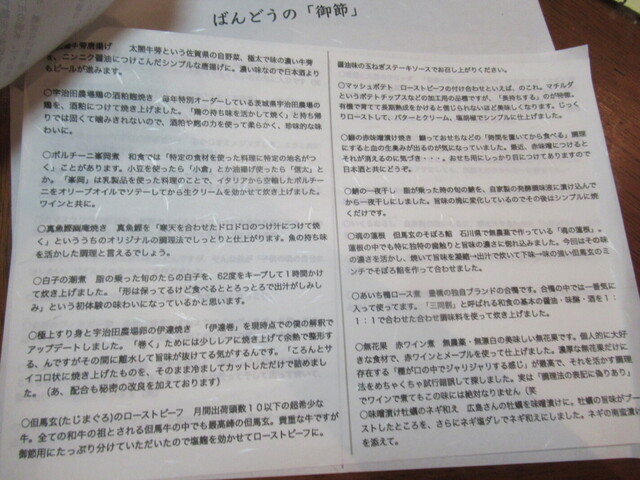 ばんどうの「御節」
牛蒡唐揚げ　太閤牛蒡という佐賀県の自野菜、極太で味の濃い牛蒡
を、ニンニク醤油につけこんだシンプルな唐揚げに。濃い味なので日本酒より
もビールが進みます。
○宇治田農場鴨の酒粕麹焼き　毎年特別オーダーしている茨城県宇治田農場の
鴨を、酒粕につけて焼き上げました。「鴨の持ち味を活かして焼く」と持ち帰
りでは固くて噛みきれないので、酒粕や麹の力を使って柔らかく、珍味的な味
わいに。
○ポルチーニ峯岡煮　和食では「特定の食材を使った料理に特定の地名がつ
く」ことがあります。小豆を使ったら「小倉」とか油揚げ使ったら「信太」と
か。「峯岡」は乳製品を使った料理のことで、イタリアから空輸したポルチ
ーニをオリーブオイルでソテーしてから生クリームを効かせて炊き上げました。
ワインと共に。
○真魚鰹幽庵焼き　真魚鰹を「寒天を合わせたドロドロのつけ汁につけて焼
く」といううちのオリジナルの調理法でしっとりと仕上がります。魚の持ち味
を活かした調理と言えるでしょう。
○白子の潮煮　脂の乗った旬のたらの白子を、62度をキープして1時間かけ
て炊き上げました。「形は保ってるけど食べるととろっとろで出汁がしみし
み」という初体験の味わいになっているかと思います。
○極上すり身と宇治田農場卵の伊達焼き　「伊達巻」を現時点での僕の解釈で
アップデートしました。「巻く」ためには少しレアに焼き上げて余熱で整形す
る、んですがその間に離水して旨味が抜けてる気がするんです。「ころんとサ
イコロ状に焼き上げたものを、そのまま冷ましてカットしただけで詰めまし
た。（あ、配合も秘密の改良を加えております）
○但馬玄(たじまぐろ)のローストビーフ　月間出荷頭数10以下の超希少な
牛。全ての和牛の祖とされる但馬牛の中でも最高峰の但馬玄。貴重な牛ですが
御節用にたっぷり分けていただいたので塩麹を効かせてローストビーフに。
醤油味の玉ねぎステーキソースでお召し上がりください。
○マッシュポテト　ローストビーフの付け合わせといえば、のこれ。マチルダ
というポテトチップスなどの加工用の品種ですが、「長持ちする」のが特徴。
有機で育てて長期熟成をかけると信じられないほど美味しくなります。じっく
りローストして、バターとクリーム、塩胡椒でシンプルに仕上げました。
○鰤の赤味噌漬け焼き　鰤っておせちなどの「時間を置いてから食べる」調理
にすると血の生臭みが出るのが気になっていました。最近、赤味噌につけると
それが消えるのに気づき・・・。おせち用にしっかり目につけてありますので
日本酒と共にどうぞ。
一夜干し　脂が乗った時の旬の鯖を、自家製の発酵調味液に漬け込んで
から一夜干しにしました。旨味の塊に変化しているのでその後はシンプルに焼
くだけです。
○魂の蓮根　但馬玄のそぼろ餡　石川県で無農薬で作っている「魂の蓮根」。
蓮根の中でも特に独特の歯触りと旨味の濃さに惚れ込みました。今回はその味
の濃さを活かし、焼いて旨味を凝縮→出汁で炊いて下味→味の強い但馬玄のミ
ンチでそぼろ餡を作って合わせました。
○あいち鴨ロース煮　豊橋の独自ブランドの合鴨です。合鴨の中では一番気に
入って使ってます。「三同割」と呼ばれる和食の基本の醤油・味醂・酒を1：
1：1で合わせた合わせ調味料を使って炊き上げました。
○無花果　赤ワイン煮　無農薬・無漂白の美味しい無花果です。個人的に大好
きな食材で、赤ワインとメープルを使って仕上げました。濃厚な無花果だけに
存在する「種が口の中でジャリジャリする感じ」が最高で、それを活かす調理
法をめちゃくちゃ試行錯誤して探しました。実は「調理法の表記に偽りあり」
でワインで煮てもこの味には絶対なりません（笑
○味噌漬け牡蠣のネギ和え　広島さんの牡蠣を味噌漬けに。牡蠣の旨味がブー
ストしたところを、さらにネギ塩ダレでネギ和えにしました。ネギの
を添えて。